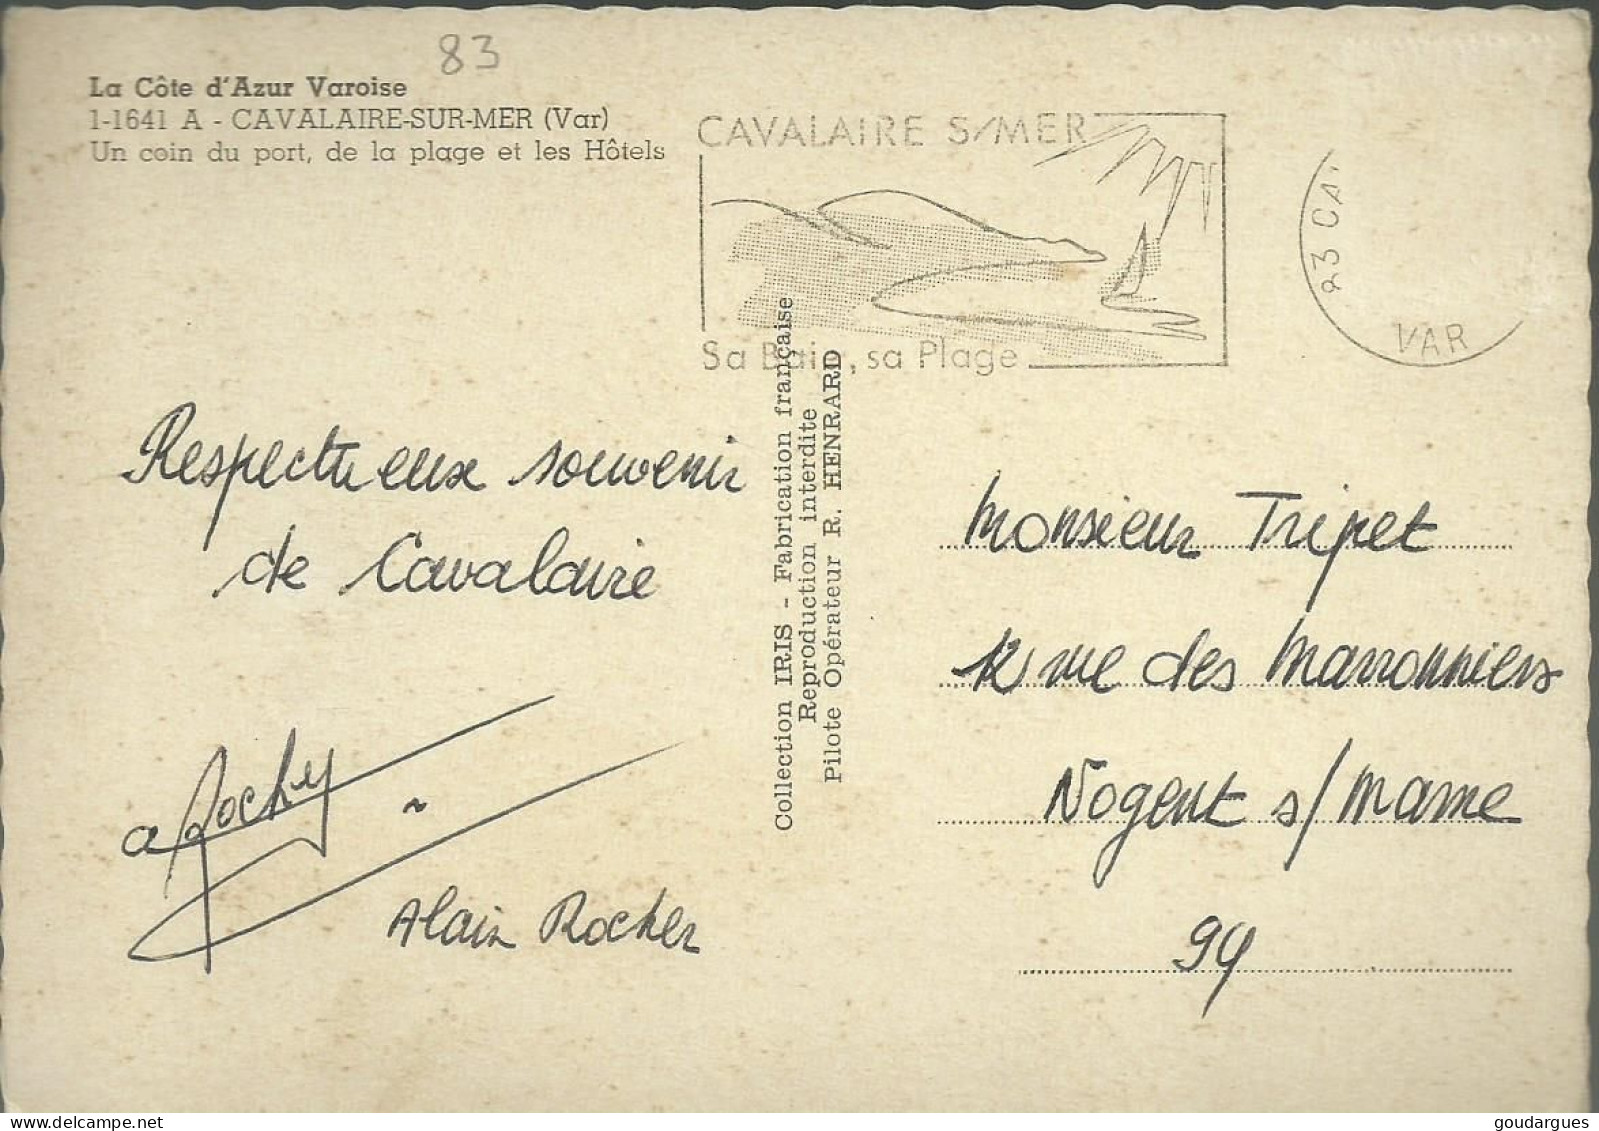 83
La Côte d'Azur Varoise
1-1641 A - CAVALAIRE-SUR-MER (Var)
Un coin du port, de la plage et les Hôtels
CAVALAIRE S/MER
Sa Baie, sa Plage
23 CA
VAR
Respectueux souvenir
de Cavalaire
Alain Rocher
Collection IRIS - Fabrication française
Reproduction interdite
Pilote Opérateur R. HENRARD
Monsieur Tripet
12 rue des Marronniers
Nogent s/ Marne
94
goudargues © delcampe.net